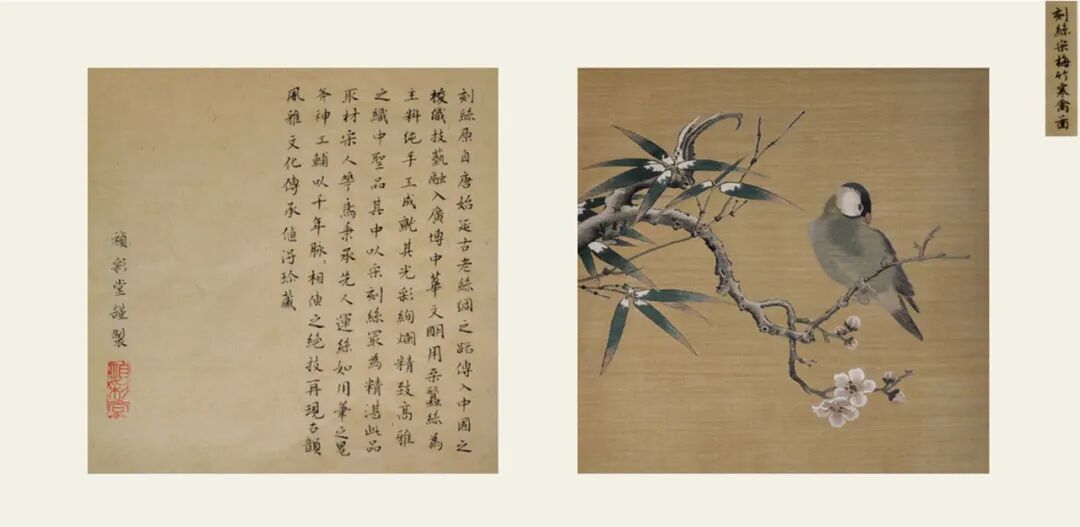 刻絲宋梅竹寒禽啚
刻絲原自唐始延古老絲綢之路傳入中國之
梭織技藝融入廣博中華文明用桑蠶絲為
主料純手工成就其光彩絢爛精致高雅
之織中聖品其中以宋刻絲最為精湛此品
取材宋人花鳥秉承先人運絲如用筆之鬼
斧神工輔以千年脉相傳之絕技再現古韻
風雅文化傳承值得珍藏
禎彩堂謹製
禎彩堂